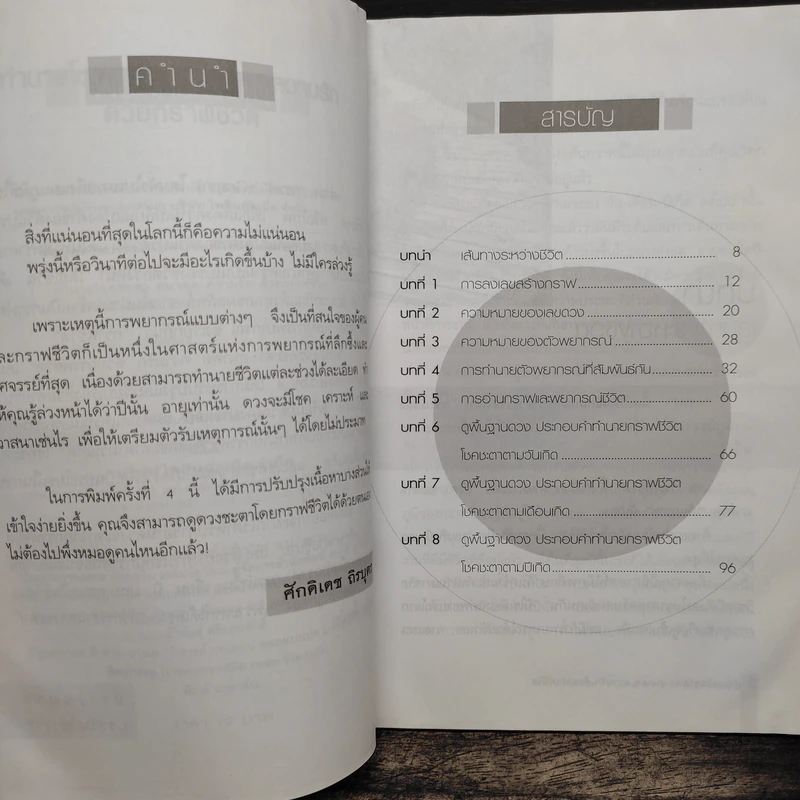 คำนำ
สิ่งที่แน่นอนที่สุดในโลกนี้ก็คือความไม่แน่นอน
พรุ่งนี้หรือวินาทีต่อไปจะมีอะไรเกิดขึ้นบ้าง ไม่มีใครล่วงรู้
เพราะเหตุนี้การพยากรณ์แบบต่างๆ จึงเป็นที่สนใจของผู้คน
ละกราฟชีวิตก็เป็นหนึ่งในศาสตร์แห่งการพยากรณ์ที่ลึกซึ้งและ
ศจรรย์ที่สุด เนื่องด้วยสามารถทำนายชีวิตแต่ละช่วงได้ละเอียด ทำ
ห้คุณรู้ล่วงหน้าได้ว่าปีนั้น อายุเท่านั้น ดวงจะมีโชค เคราะห์ และ
วาสนาเช่นไร เพื่อให้เตรียมตัวรับเหตุการณ์นั้นๆ ได้โดยไม่ประมาท
ในการพิมพ์ครั้งที่ 4 นี้ ได้มีการปรับปรุงเนื้อหาบางส่วนให้
เข้าใจง่ายยิ่งขึ้น คุณจึงสามารถดูดวงชะตาโดยกราฟชีวิตได้ด้วยตนเอง
ไม่ต้องไปพึ่งหมอดูคนไหนอีกแล้ว!
ศักดิเดช ถิรบุตร
สารบัญ
บทนำ เส้นทางระหว่างชีวิต 8
บทที่ 1 การลงเลขสร้างกราฟ 12
บทที่ 2 ความหมายของเลขดวง 20
บทที่ 3 ความหมายของตัวพยากรณ์ 28
บทที่ 4 การทำนายตัวพยากรณ์ที่สัมพันธ์กัน 32
บทที่ 5 การอ่านกราฟและพยากรณ์ชีวิต 60
บทที่ 6 ดูพื้นฐานดวง ประกอบคำทำนายกราฟชีวิต
โชคชะตาตามวันเกิด 66
บทที่ 7 ดูพื้นฐานดวง ประกอบคำทำนายกราฟชีวิต
โชคชะตาตามเดือนเกิด 77
บทที่ 8 ดูพื้นฐานดวง ประกอบคำทำนายกราฟชีวิต
โชคชะตาตามปีเกิด 96